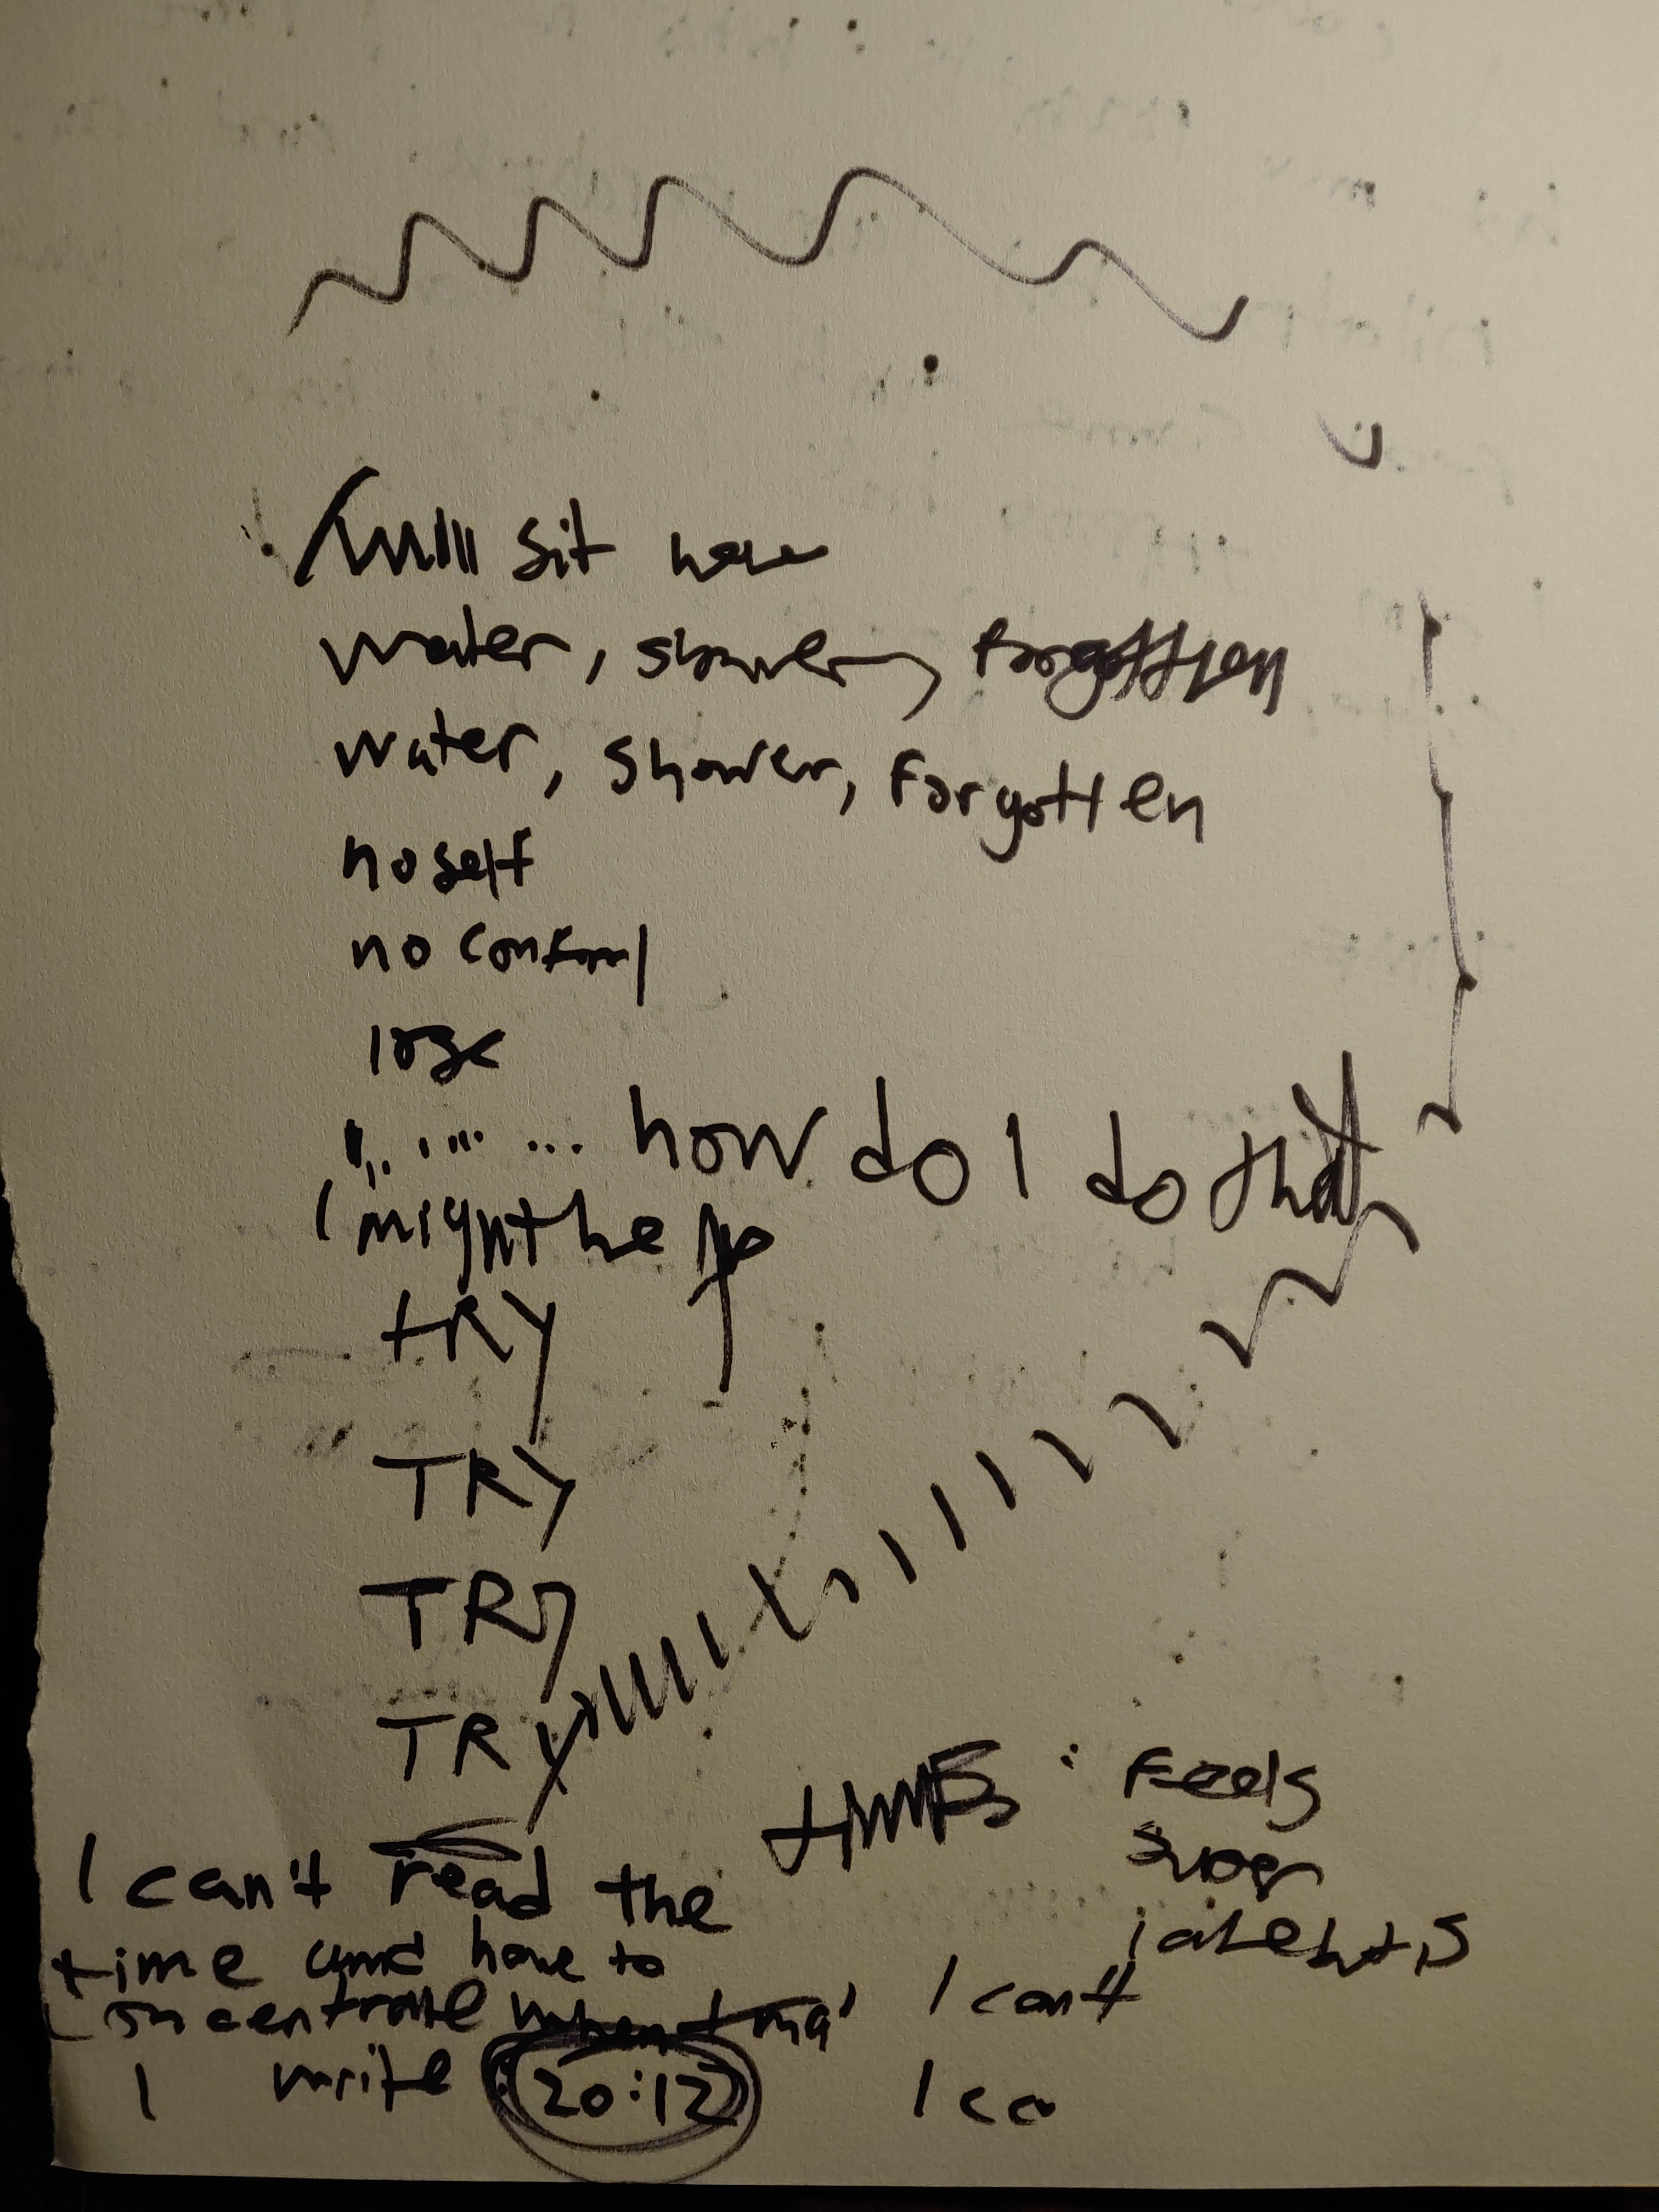 sit here
water, shower, forgotten
water, shower, forgotten
no self
no control
lose
... how do I do that
I might help
TRY
TRY
TRY
TRY
: Feels
super
I can't read the
time and have to
concentrate when I
I write 20:12
I can't
I ca